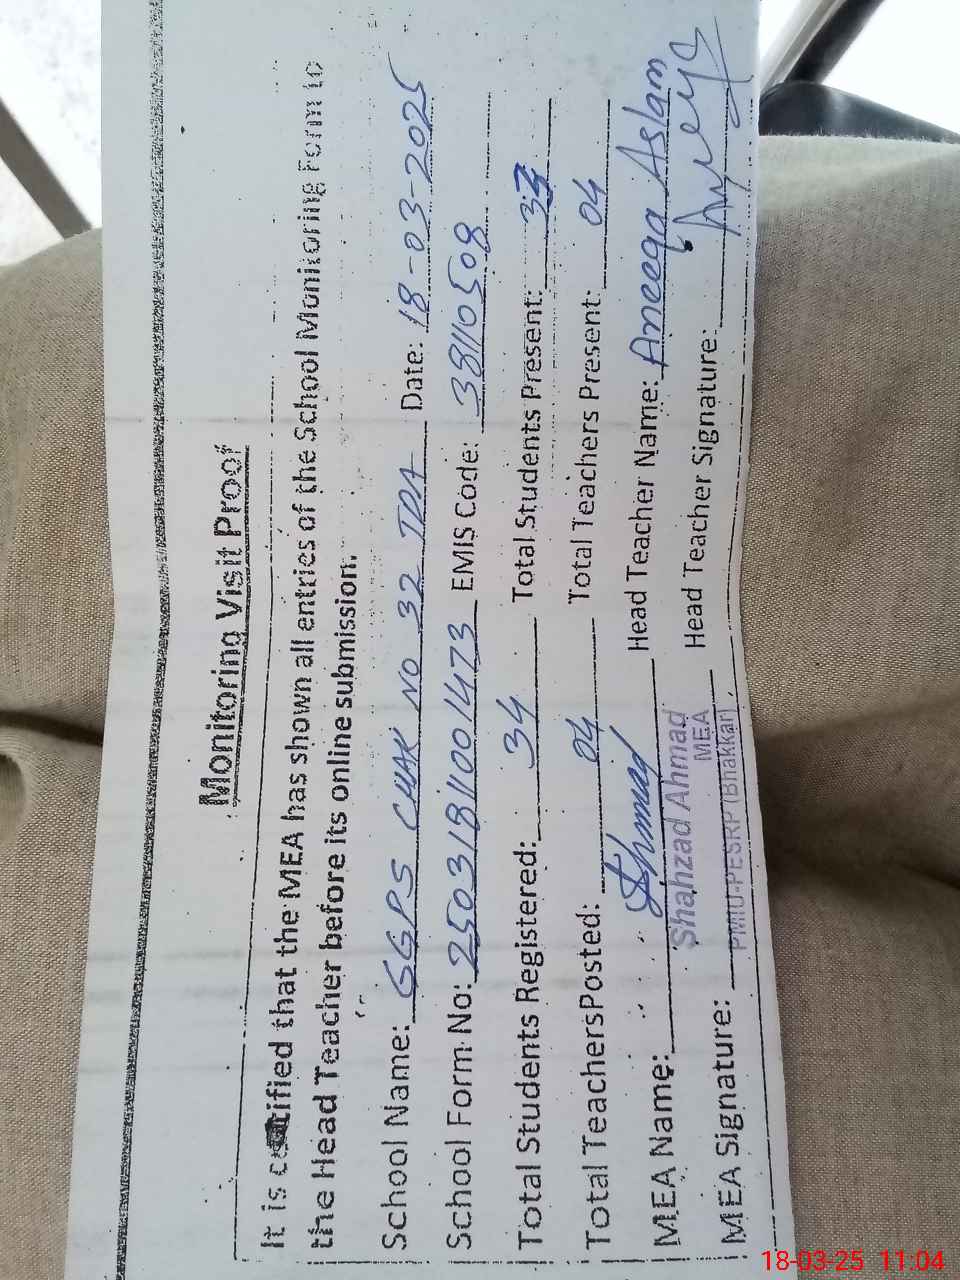 Monitoring Visit Proof
It is certified that the MEA has shown all entries of the School Monitoring Form to
the Head Teacher before its online submission.
School Name: GGPS CHAK NO 32 TDA Date: 18-03-2025
School Form No: 25031811001473 EMIS Code: 38110508
Total Students Registered: 34 Total Students Present:
Total TeachersPosted: 04 Total Teachers Present: 04
MEA Name: Head Teacher Name: Aneeqa Aslam
Shahzad Ahmad
MEA
MEA Signature: PMIU-PESRP (Bhakkar) Head Teacher Signature:
18-03-25 11:04